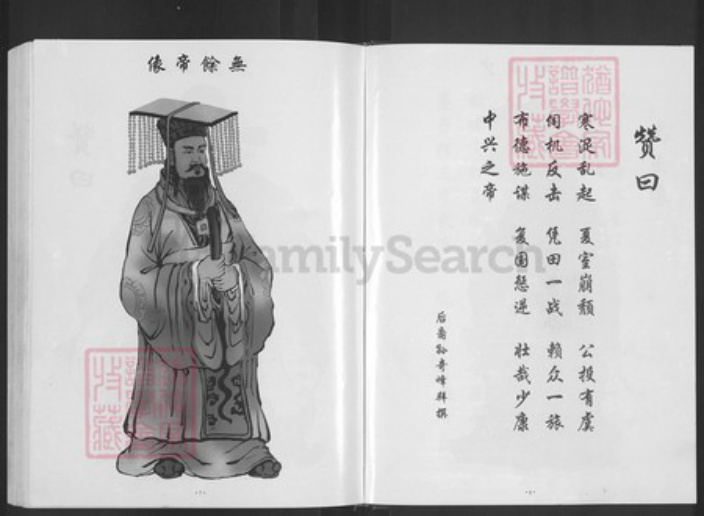 無餘帝像
赞曰
寒浞乱起 夏室崩颓 公投有虞
伺机反击 凭田一战 赖众一旅
布德施谋 复国惩逆 壮哉少康
中兴之帝
后裔孙奇峰拜撰
猶他家譜學會收藏
FamilySearch